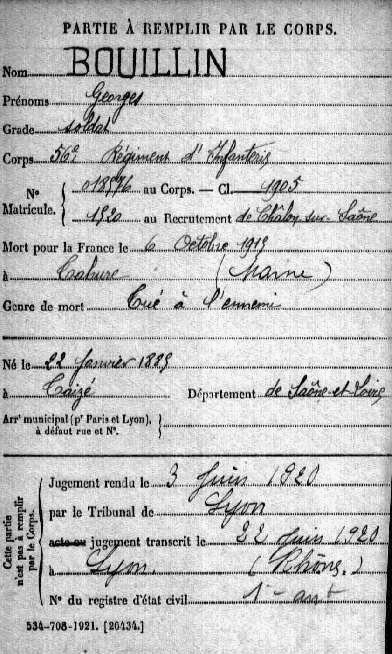 PARTIE À REMPLIR PAR LE CORPS.
Nom BOUILLIN
Prénoms Georges
Grade soldat
Corps 56e Régiment d'Infanterie
N° Matricule. { 018576 au Corps. — Cl. 1905
1520 au Recrutement de Chalon sur-Saône
Mort pour la France le 6 Octobre 1915
à Tahure (Marne)
Genre de mort Tué à l'ennemi
Né le 22 Janvier 1885
à Département de Saône-et-Loire
Arrt municipal (pr Paris et Lyon), à défaut rue et N°. }
Cette partie n'est pas à remplir par le Corps.
Jugement rendu le 3 Juin 1920
par le Tribunal de Lyon
acte ou jugement transcrit le 22 Juin 1920
à Lyon (Rhône.)
N° du registre d'état civil
534-708-1921. [26434.]